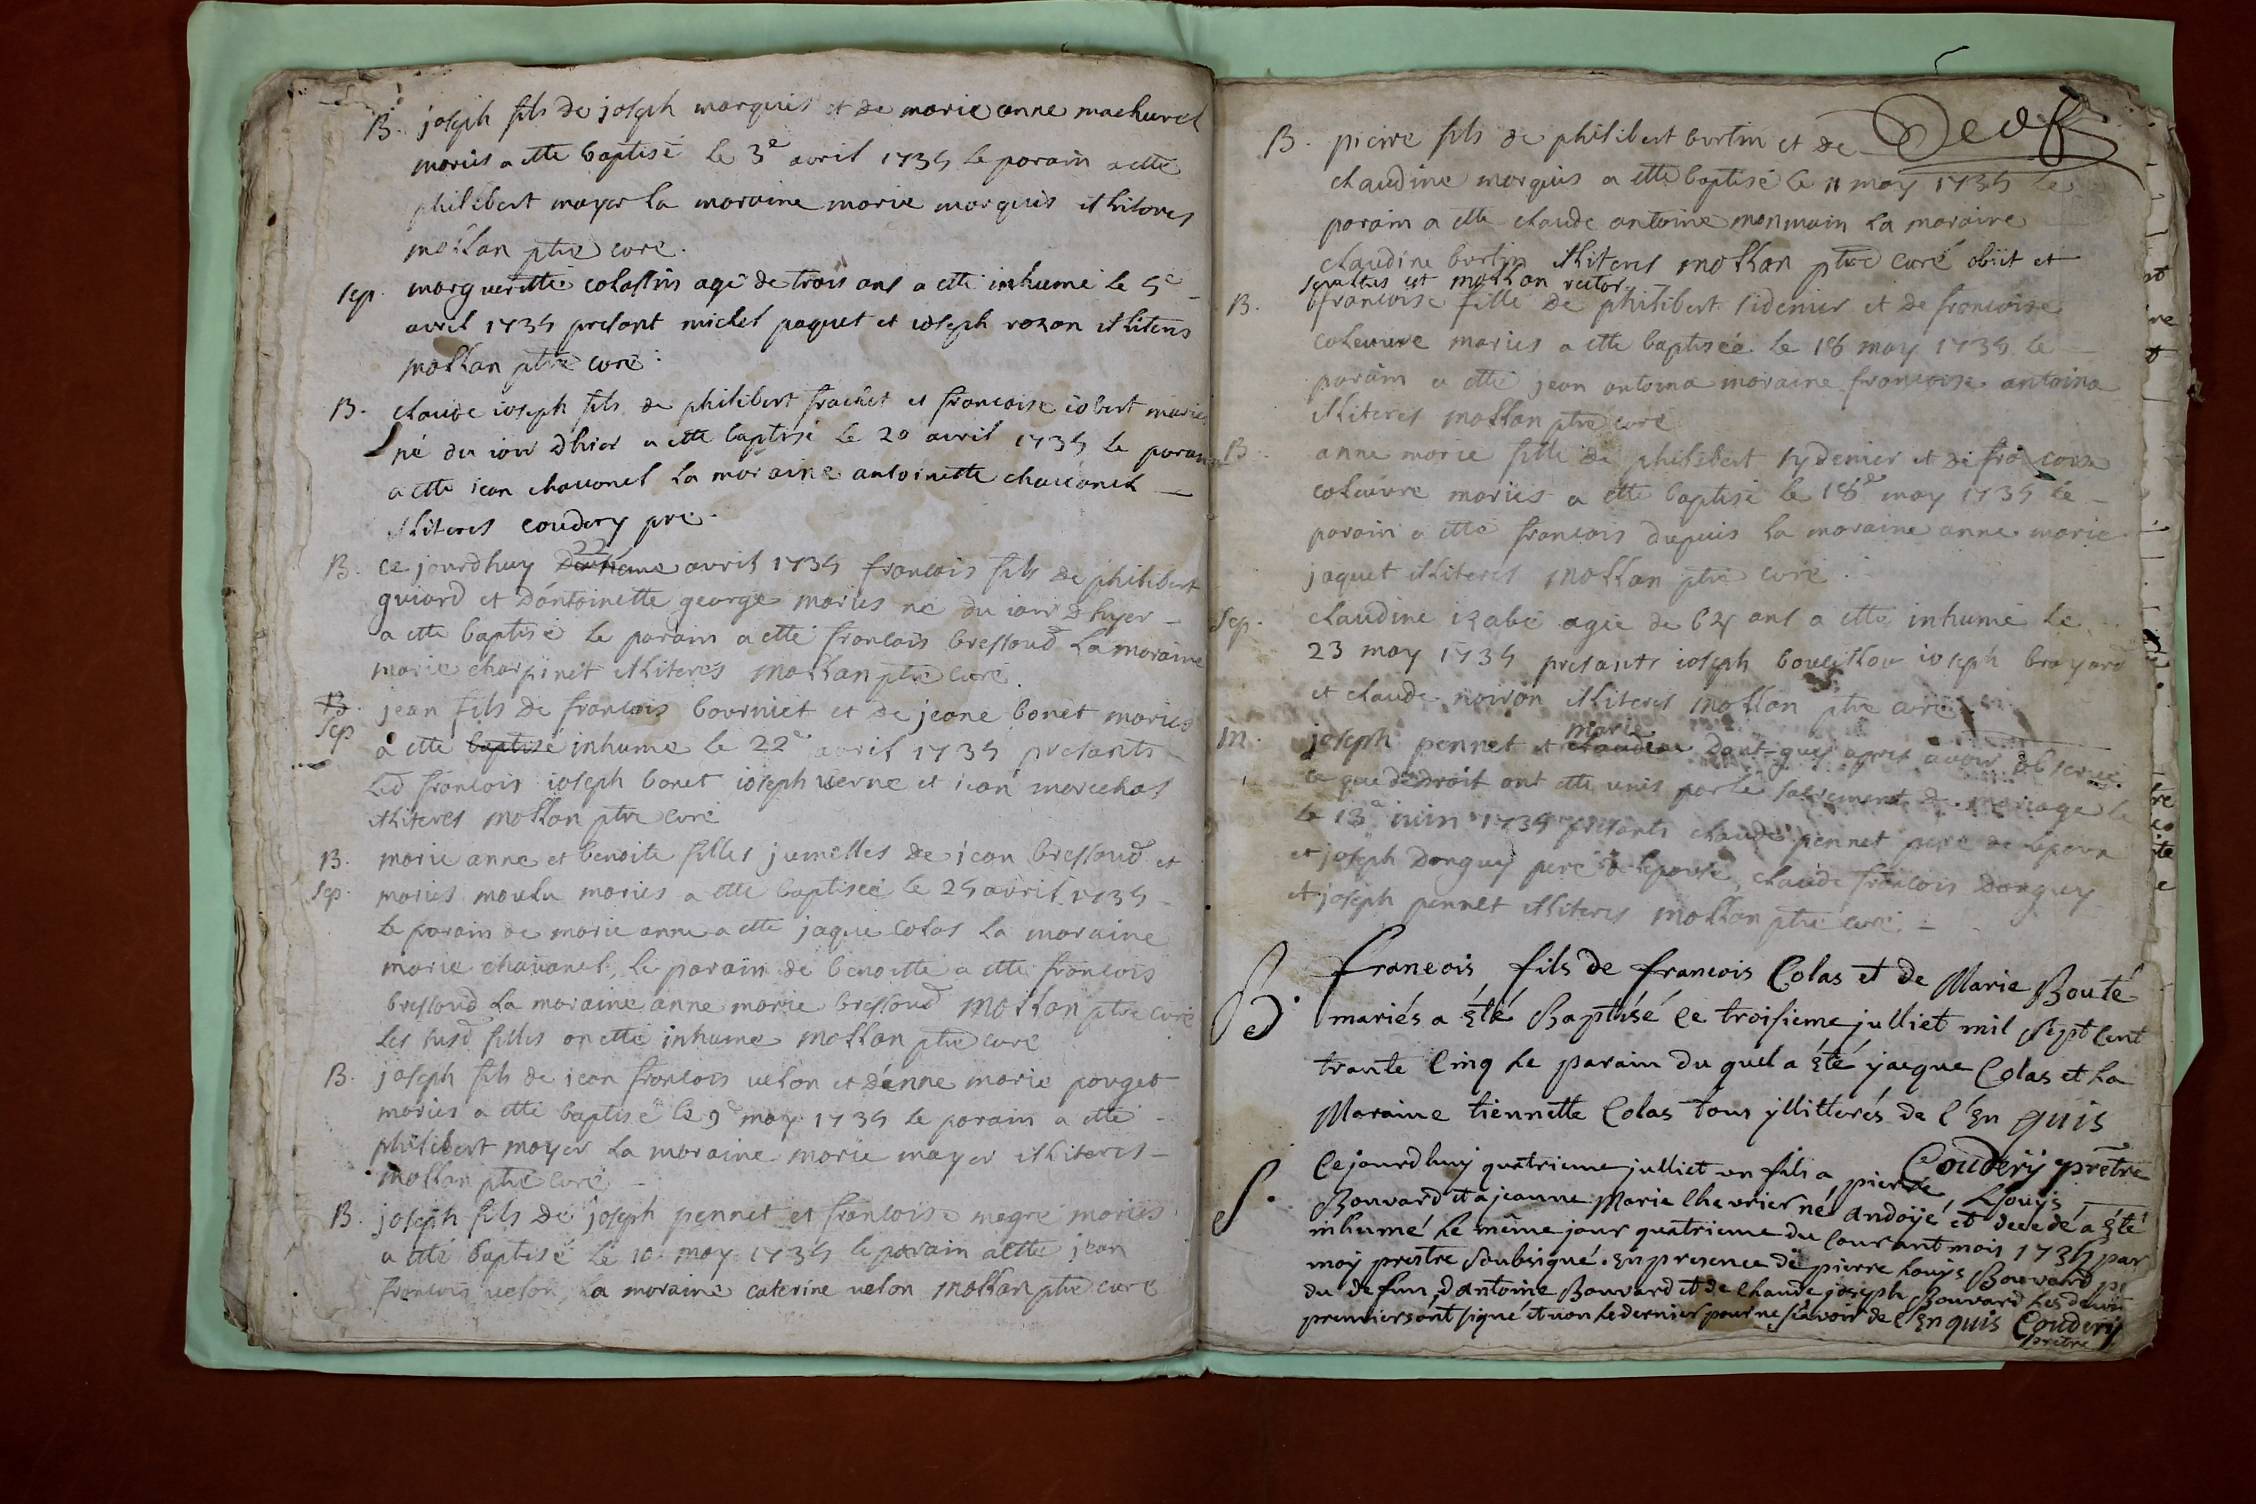 B. joseph fils de joseph marquis et de marie anne machurel
mariés a etté baptisé le 3e avril 1735 le parain a etté
philibert mayer la maraine marie marquis illiteres
mollan ptre curé.
sep. margueritte colassin agé de trois ans a etté inhumé le 5e
avril 1735 presant michel paquet et ioseph rozan illiteres
mollan ptre curé.
B. claude ioseph fils de philibert frachet et francoise iobert mariés
né du iour dhier a etté baptisé le 20 avril 1735 le parain
a etté jean chavanel la maraine antoinette chavanel
illiteres coudery pre.
22
B. ce jourdhuy avril 1735 francois fils de philibert
guiard et dantoinette george mariés né du iour dhyer
a etté baptisé le parain a etté francois bressoud la maraine
marie charpinet illiteres mollan ptre curé.
B. jean fils de francois bourniet et de jeane bonet mariés
Sep a etté baptizé inhumé le 22e avril 1735 presants
led francois ioseph bonet ioseph verne et jean marechal
illiteres mollan ptre curé
B. marie anne et benoite filles jumelles de jean bressoud et
Sep. maries moulu mariés a etté baptiseé le 25 avril 1735
le parain de marie anne a etté jaque colas la maraine
marie chavanel, le parain de benoitte a etté francois
bressoud la maraine anne marie bressoud mollan ptre curé
les susd filles on etté inhume mollan ptre curé
B. joseph fils de jean francois velon et d'anne marie pouget
mariés a etté baptisé le 9e may 1735 le parain a etté
philibert mayer la maraine marie mayer illiteres
mollan ptre curé
B. joseph fils de joseph pennet et francoise megre mariés
a etté baptisé le 10 may 1735 le parain a etté jean
francois velon, la maraine caterine velon mollan ptre curé
B. pierre fils de philibert burtin et de
claudine marquis a etté baptisé le 11 may 1735 le
parain a etté claude antoine monmain la maraine
claudine burtin illiteres mollan ptre curé obiit et
sepultus est mollan rector
B. francoise fille de philibert sidenier et de francoise
coleuvre mariés a etté baptiseé le 18 may 1735 le
parain a etté jean antoina maraine francoise antoina
illiteres mollan ptre curé
B. anne marie fille de philibert sydenier et de francoise
coleuvre mariés a etté baptisé le 18e may 1735 le
parain a etté francois dupuis la maraine anne marie
jaquet illiteres mollan ptre curé.
Sep. claudine izabé agée de ans a etté inhumé le
23 may 1735 presants ioseph ioseph brayard
et claude noiron illiteres mollan ptre curé
marie
m. joseph pennet et claudine donguy apres avoir observé
ce que de droit ont etté unis par le sacrement de mariage le
le 13e iuin 1735 presants claude pennet pere de lepoux
et joseph donguy pere de lepouse, claude francois donguy
et joseph pennet illiteres mollan ptre curé.
B. francois fils de francois Colas et de Marie Bouté
mariés a été Baptisé le troisieme julliet mil sept cent
trante Cinq le parain du quel a été jacque Colas et la
Maraine tiennette Colas tous jllitterés de l'En quis
Couderÿ prêtre
S. Cejourdhuy quatrieme julliet un fils a pierre Louÿs
Bouvard et a jeanne Marie Chevrier né andoÿé et decedé a été
inhumé le même jour quatrieme du Courant mois 1735 par
moy prestre soubsigné. En presence de pierre Louÿs Bouvard
du defun, d'antoine Bouvard et de Claude joseph Bouvard les deux
premiers ont signé et non le dernier pour ne sçavoir de l'En quis Couderÿ
prêtre